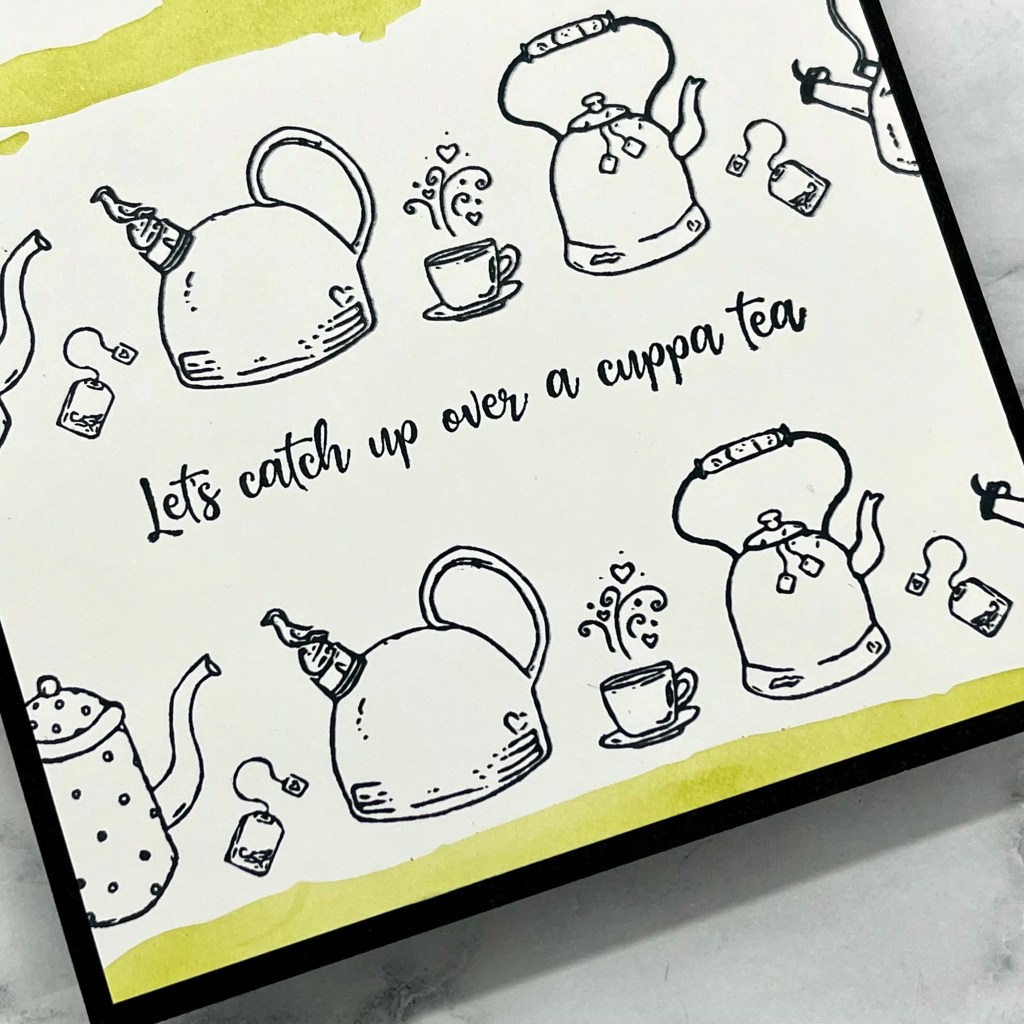 Let's catch up over a cuppa tea